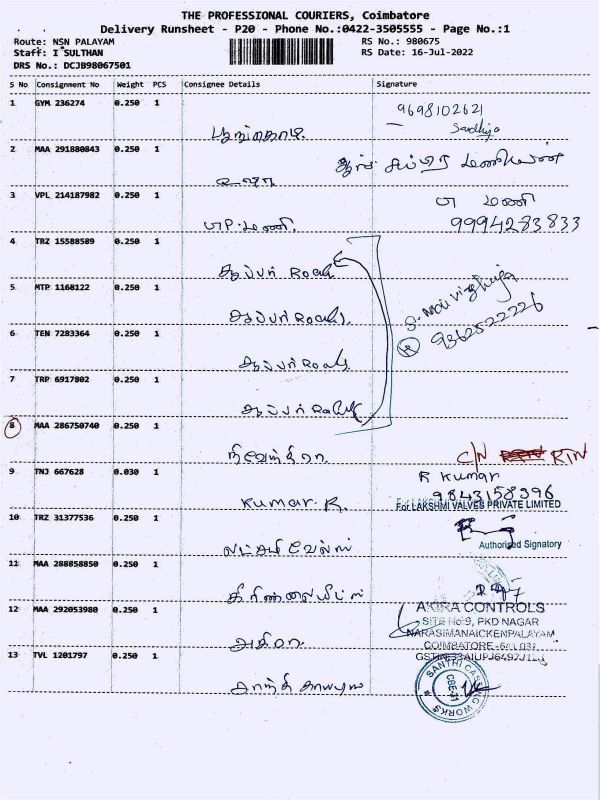 THE PROFESSIONAL COURIERS, Coimbatore
Delivery Runsheet - P20 - Phone No.:0422-3505555 - Page No.:1
Route: NSN PALAYAM
RS No.: 980675
Staff: I SULTHAN
RS Date: 16-Jul-2022
DRS No.: DCJB98067501
S No Consignment No Weight PCS Consignee Details Signature
1 GYM 236274 0.250 1
9698102621
Sandhiya
பூங்கொடி
2 MAA 291880843 0.250 1
உஷா
3 VPL 214187982 0.250 1
மணி
P. மணி.
9994283833
4 TRZ 15588589 0.250 1
சூப்பர் Road
5 MTP 1168122 0.250 1
சூப்பர் Road
9362522226
6 TEN 7283364 0.250 1
சூப்பர் Road
7 TRP 6917802 0.250 1
சூப்பர்
8 MAA 286750740 0.250 1
C/N RTN
நிவேந்திரா
9 TNJ 667628 0.030 1
R Kumar
9843158396
Kumar. R.
For LAKSHMI VALVES PRIVATE LIMITED
10 TRZ 31377536 0.250 1
Authorised Signatory
லட்சுமி வேல்ஸ்
11 MAA 288858850 0.250 1
12 MAA 292053980 0.250 1
AKIRA CONTROLS
SITE No:9, PKD NAGAR
NARASIMANAICKENPALAYAM
COIMBATORE - 641 031
அகிரா
13 TVL 1201797 0.250 1
SANTHI CASTING WORKS
CBE-31